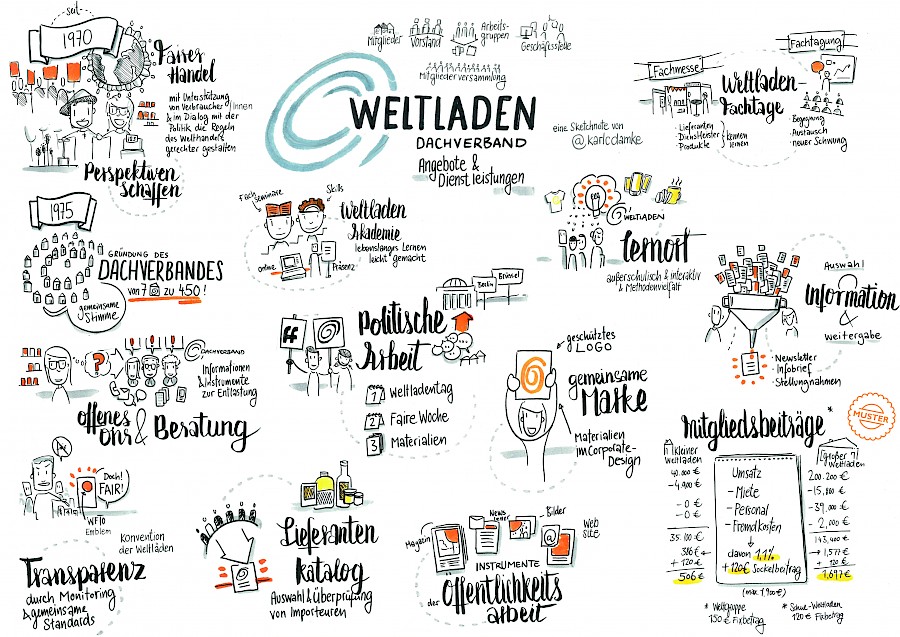 seit
1970
Fairer
Handel
mit Unterstützung
von Verbraucher/innen
& im Dialog mit der
Politik die Regeln
des Welthandels
gerechter gestalten
Perspektiven
Schaffen
Mitglieder
Vorstand
Arbeits-
gruppen
Geschäftsstelle
Mitgliederversammlung
WELTLADEN
DACHVERBAND
Angebote &
Dienstleistungen
eine Sketchnote von
@karlcdamke
Fachmesse
Fachtagung
Weltladen-
Fachtage
· Lieferanten
· Dienstleister
· Produkte
kennen
lernen
· Begegnung
· Austausch
· neuer Schwung
1975
GRÜNDUNG DES
DACHVERBANDES
von 7 zu 450!
gemeinsame
Stimme
Fach
Seminare
Skills
online
Präsenz
Weltladen
Akademie
lebenslanges Lernen
leicht gemacht
WELTLADEN
Lernort
außerschulisch & interaktiv
& Methodenvielfalt
Auswahl
Information
&
Weitergabe
· Newsletter
· Infobrief
· Stellungnahmen
Berlin
Brüssel
Politische
Arbeit
1 Weltladentag
2 Faire Woche
3 Materialien
geschütztes
LOGO
gemeinsame
Marke
Materialien
im Corporate-
Design
?
DACHVERBAND
Informationen
& Instrumente
zur Entlastung
offenes
Ohr & Beratung
Mitgliedsbeiträge*
MUSTER
kleiner
Weltladen
40.000 €
- 4.900 €
- 0 €
- 0 €
35.100 €
386 €
+ 120 €
506 €
Umsatz
- Miete
- Personal
- Fremdkosten
davon 1,1%
+ 120€ Sockelbeitrag
(max 1.900 €)
Großer
Weltladen
200.200 €
- 15.800 €
- 39.000 €
- 2.000 €
143.400 €
1.577 €
+ 120 €
1.697 €
* Weltgruppe
150 € Fixbetrag
* Schul-Weltladen
120 € Fixbetrag
Doch!
FAIR!
WFTO
Emblem
Konvention
der Weltläden
Transparenz
durch Monitoring
& gemeinsame
Standards
Lieferanten
Katalog
Auswahl & Überprüfung
von Importeuren
Magazin
News
letter
Bilder
Web
site
INSTRUMENTE
der Öffentlichkeits
arbeit